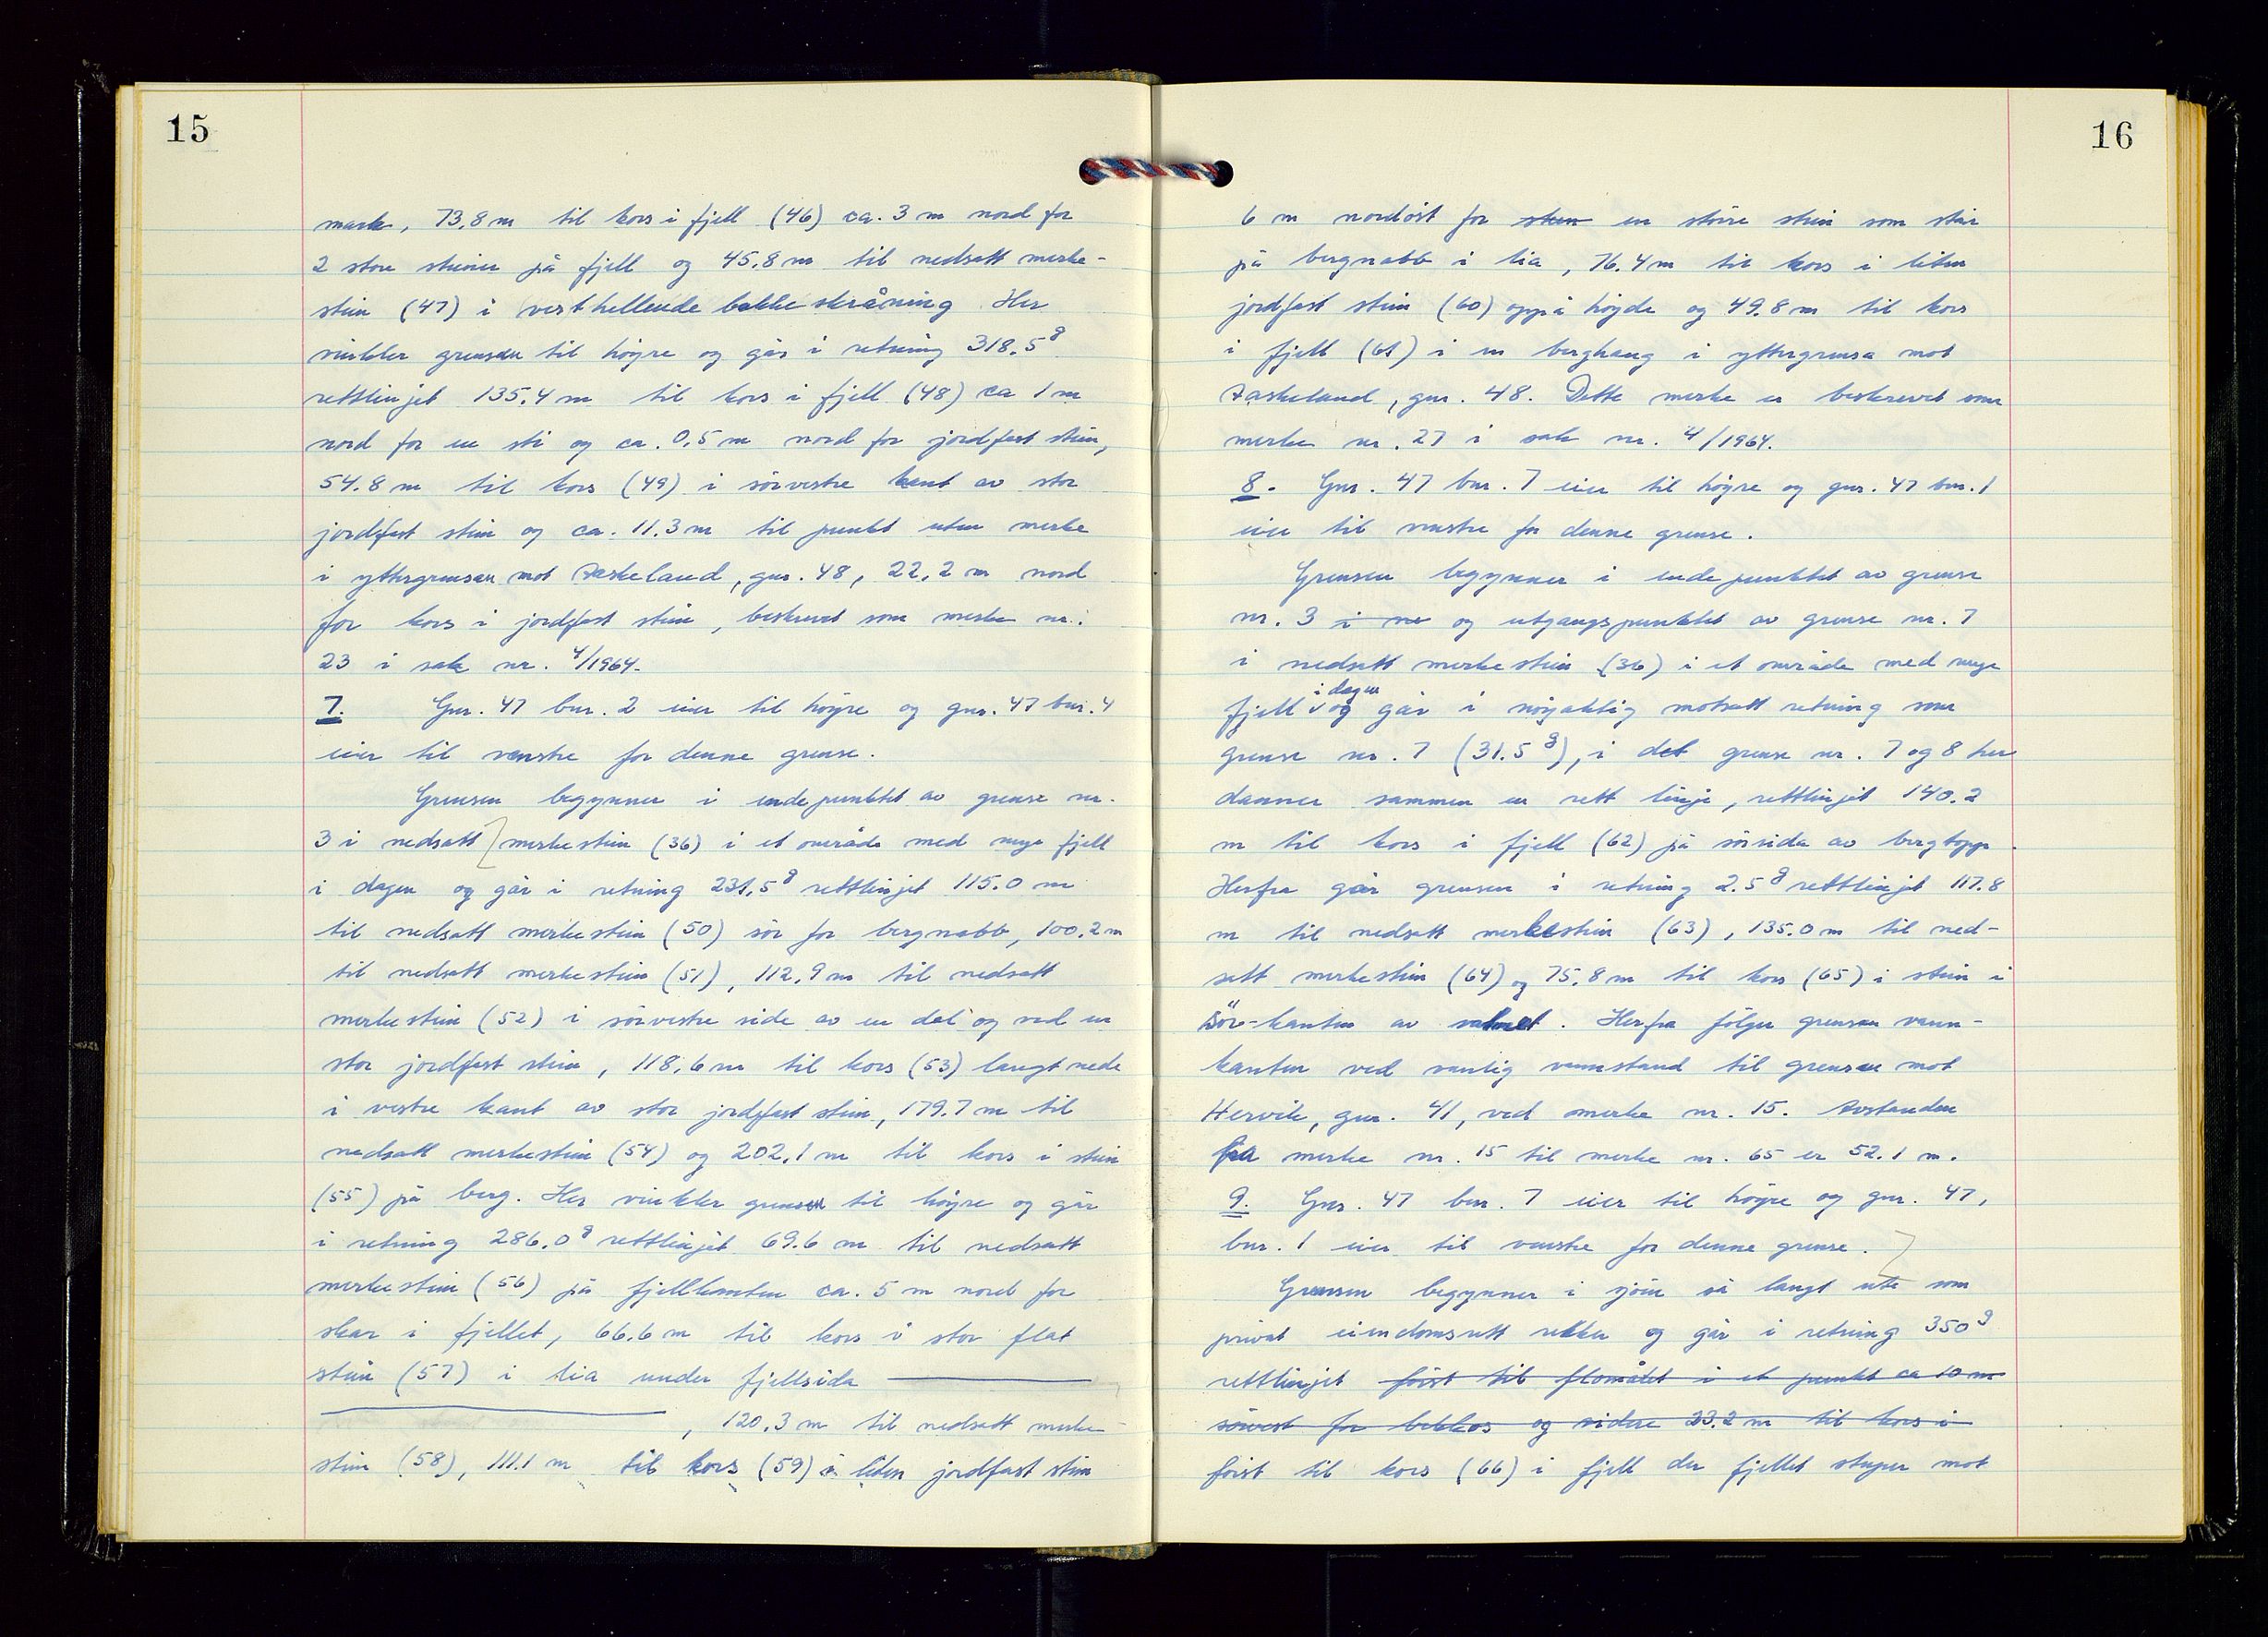 15
mark, 73,8 m til kors i fjell (46) ca. 3 m nord for
2 store steiner på fjell og 45,8 m til nedsatt merke-
stein (47) i vesthellende bakkeskråning Her
vinkler grensen til høyre og går i retning 318,5g
rettlinjet 135,4 m til kors i fjell (48) ca 1 m
nord for en sti og ca. 0,5 m nord for jordfast stein,
54.8 m til kors (49) i sörvestre kant av stor
jordfast stein og ca. 11.3 m til punkt uten merke
i yttergrensen mot Askeland, gnr. 48, 22,2 m nord
for kors i jordfast stein, beskrevet som merke nr.
23 i sak nr. 4/1964.
7. Gnr. 47 bnr. 2 eier til höyre og gnr. 47 bnr. 4
eier til venstre for denne grense.
Grensen begynner i endepunktet av grense nr.
3 i nedsatt merkestein (36) i et område med mye fjell
i dagen og går i retning 231,5g rettlinjet 115.0 m
til nedsatt merkestein (50) sör for bergnabb, 100.2 m
til nedsatt merkestein (51), 112,9 m til nedsatt
merkestein (52) i sörvestre side av en dal og ved en
stor jordfast stein, 118,6 m til kors (53) langt nede
i vestre kant av stor jordfast stein, 179.7 m til
nedsatt merkestein (54) og 202,1 m til kors i stein
(55) på berg. Her vinkler grensen til höyre og går
i retning 286,0g rettlinjet 69.6 m til nedsatt
merkestein (56) på fjellkanten ca. 5 m nord for
skar i fjellet, 66.6 m til kors i stor flat
stein (57) i lia under fjellsida
, 120.3 m til nedsatt merke-
stein (58), 111.1 m til kors (59) i liten jordfast stein
16
6 m nordöst for sten en större stein som står
på bergnabb i lia, 76.4 m til kors i liten
jordfast stein (60) oppå höyde og 49.8 m til kors
i fjell (61) i en berghang i yttergrensa mot
Askeland, gnr. 48. Dette merke er beskrevet som
merke nr. 27 i sak nr. 4/1964.
8. Gnr. 47 bnr. 7 eier til höyre og gnr. 47 bnr. 1
eier til venstre for denne grense.
Grensen begynner i endepunktet av grense
nr. 3 i ne og utgangspunktet av grense nr. 7
i nedsatt merkestein (36) i et område med mye
fjell i dagen og går i nöyaktig motsatt retning som
grense nr. 7 (31.5g), i det grense nr. 7 og 8 her
danner sammen en rett linje, rettlinjet 140.2
m til kors i fjell (62) på sörsida av bergtopp.
Herfra går grensen i retning 2.5g rettlinjet 117.8
m til nedsatt merkestein (63), 135.0 m til ned-
satt merkestein (64) og 75,8 m til kors (65) i stein i
sör-kanten av vatnet. Herfra fölger grensen vann-
kanten ved vanlig vannstand til grensen mot
Hervik, gnr. 41, ved merke nr. 15. Avstanden
fra merke nr. 15 til merke nr. 65 er 52.1 m.
9. Gnr. 47 bnr. 7 eier til höyre og gnr. 47,
bnr. 1 eier til venstre for denne grense.
Grensen begynner i sjöen så langt ute som
privat eiendomsrett rekker og går i retning 350g
rettlinjet först til flomålet i et punkt ca 10 m
sörvest for bekkos og videre 23.2 m til kors i
först til kors (66) i fjell der fjellet stuper mot